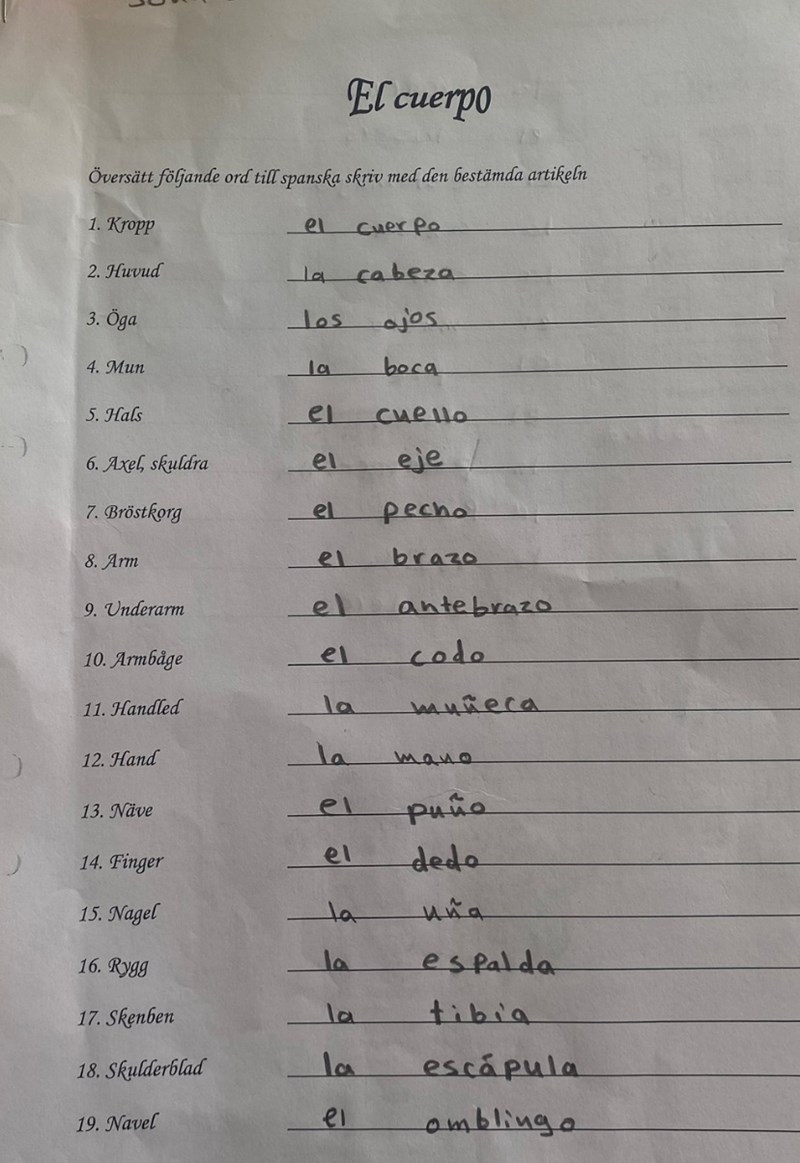 El cuerpo
Översätt följande ord till spanska skriv med den bestämda artikeln
1. Kropp el cuerpo
2. Huvud la cabeza
3. Öga los ojos
4. Mun la boca
5. Hals el cuello
6. Axel, skuldra el eje
7. Bröstkorg el pecho
8. Arm el brazo
9. Underarm el antebrazo
10. Armbåge el codo
11. Handled la muñeca
12. Hand la mano
13. Näve el puño
14. Finger el dedo
15. Nagel la uña
16. Rygg la espalda
17. Skenben la tibia
18. Skulderblad la escápula
19. Navel el omblingo